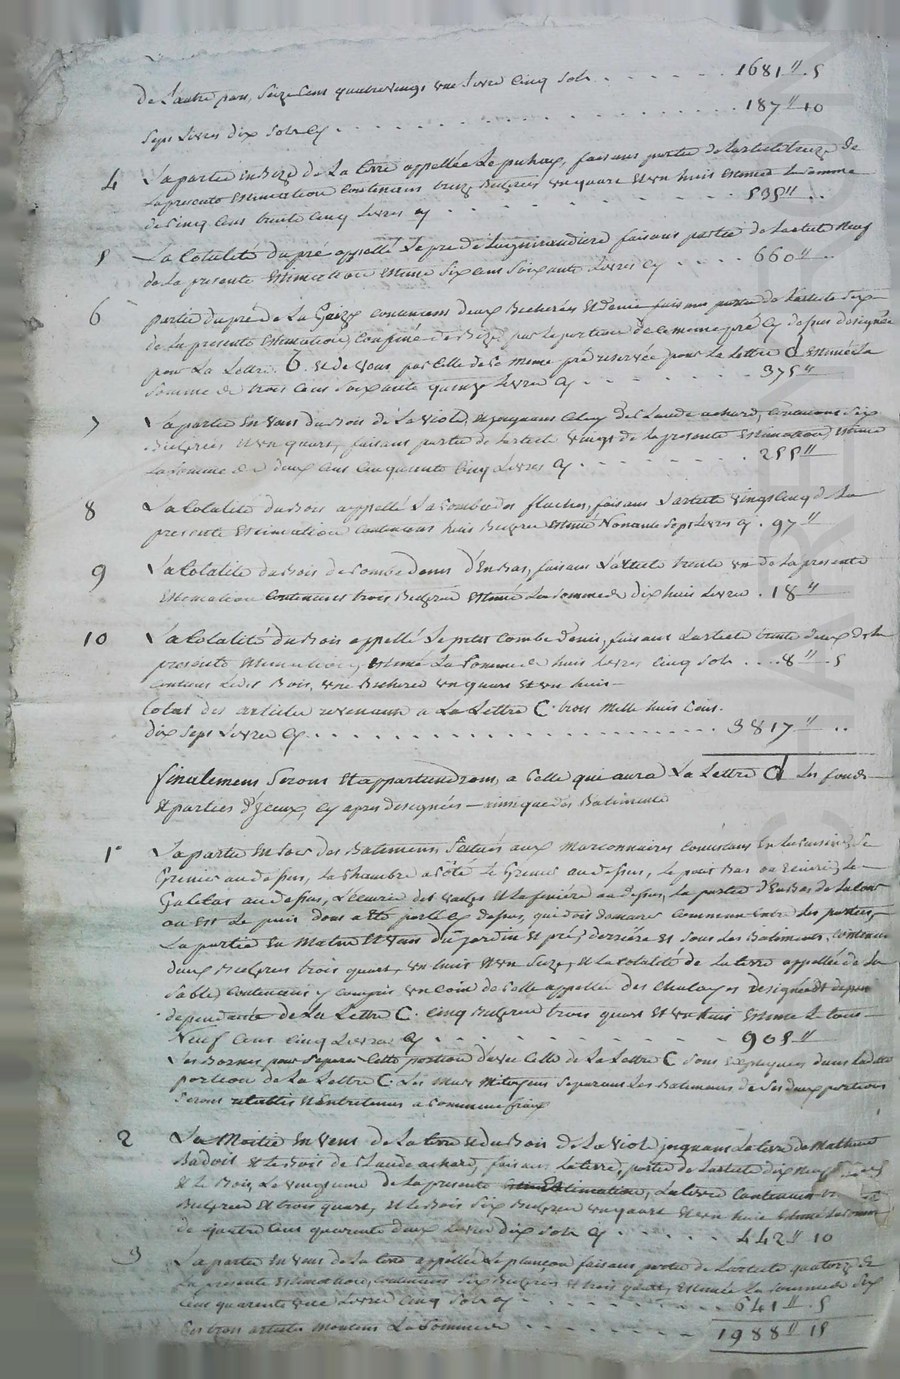 De Lautre part, Seize Cens quatrevings une Livre Cinq Sols 1681" . 5
Sept Livres dix Sols Cy 187" 10
4 La partie en Bize de La terre appellée Le puhay, faisant partie de Larticle treize de
La presente Estimation Contenant treize Bicherées un quart et un huit Estimée La somme
de Cinq Cens trente Cinq Livres Cy 535" ..
5 La totalité du pré appellé Le pré de faisant partie de Larticle Neuf
de La presente Estimation Estimé Six Cens Soixante Livres Cy 660" ..
6 partie du pré de La contenant deux Bicherées et demie faisant partie de Larticle Six
de La presente Estimation, Confiné de Bize par La portion de Ce meme pré Cy dessus designée
pour La Lettre B. et de Vent par Celle de Ce meme pré reservée pour La Lettre d Estimée La
Somme de trois Cens Soixante quinze Livres Cy 375"
7 La partie en Vent du Bois de La Viole, joignant Celuy de Claude achard, Contenant Six
Bicherées et un quart, faisant partie de Larticle vingt de La presente Estimation Estimée
La somme de deux Cens Cinquante Cinq Livres Cy 255"
8 La totalité du Bois appellé La Combe des fluches, faisant Larticle vingt Cinq de La
presente Estimation Contenant huit Bicherées Estimé Nonante Sept Livres Cy . 97"
9 La totalité du Bois de Combe denis d'En Bas, faisant Larticle trente un de La presente
Estimation Contenant trois Bicherées Estimé La Somme de dix huit Livres . 18"
10 La totalité du Bois appellé Le petit Combe denis, faisant Larticle trente deux de La
presente Estimation, Estimé La Somme de huit Livres Cinq Sols 8" . 5
Contient Ledit Bois, une Bicherée un quart et un huit
total des articles revenant a La Lettre C trois Mille huit Cens
dix Sept Livres Cy 3817" ..
finalement Seront et appartiendront, a Celle qui aura La Lettre d Les fonds
et parties d'yceux, Cy apres designés ainsi que des Batiments
1° La partie en Soir des Batimens Situés aux Marconnaires Consistant En La cuisine, Le
Grenier au dessus, La Chambre a Côté Le Grenier au dessus, Le
Galetas au dessus, L'écurie des vaches et La feniere au dessus, La partie d'En Bas de La Cour
ou est Le puis dont a été parlé Cy dessus, qui doit demeurer Commun entre Les parties,
La partie En Matin et Vent du jardin et pré, derriére et Sous Les Batiments, Contenant
deux Bicherées trois quarts, un huit et un Seize, et La totalité de La terre appellée de La
Sable, Contenant y Compris un Coin de Celle appellée des Chalayes designé
dependante de La Lettre C. Cinq Bicherées trois quart et un huit Estimé Le tout
Neuf Cens Cinq Livres Cy 905"
Les Bornes pour Separer Cette portion d'avec Celle de La Lettre C Sont Expliquées dans Ladite
portion de La Lettre C. Les Murs Mitoyens Separant Les Batimens de Ses deux portions
Seront établis et Entretenus a Communs fraix
2 La Moitié En Vent de La terre et du Bois de La Viole joignant La terre de Mathieu
Badoit et Le Bois de Claude achard, faisant, La terre, partie de Larticle dix neuf
et Le Bois, Le vingtieme de La presente Estimation, La terre Contenant
Bicherées et trois quart, et Le Bois Six Bicherées un quart et un huit Estimé La Somme
de quatre Cens quarante deux Livres dix Sols Cy 442" 10
3 La partie En Vent de La terre appellée Le plançon faisant partie de Larticle quatorze de
La presente Estimation, Contenant Six Bicherées et trois quart, Estimée La Somme de Six
Cens quarante une Livres Cinq Sols Cy 641" . 5
Ces trois articles Montent La Somme de 1988" 15
CHAREYRON